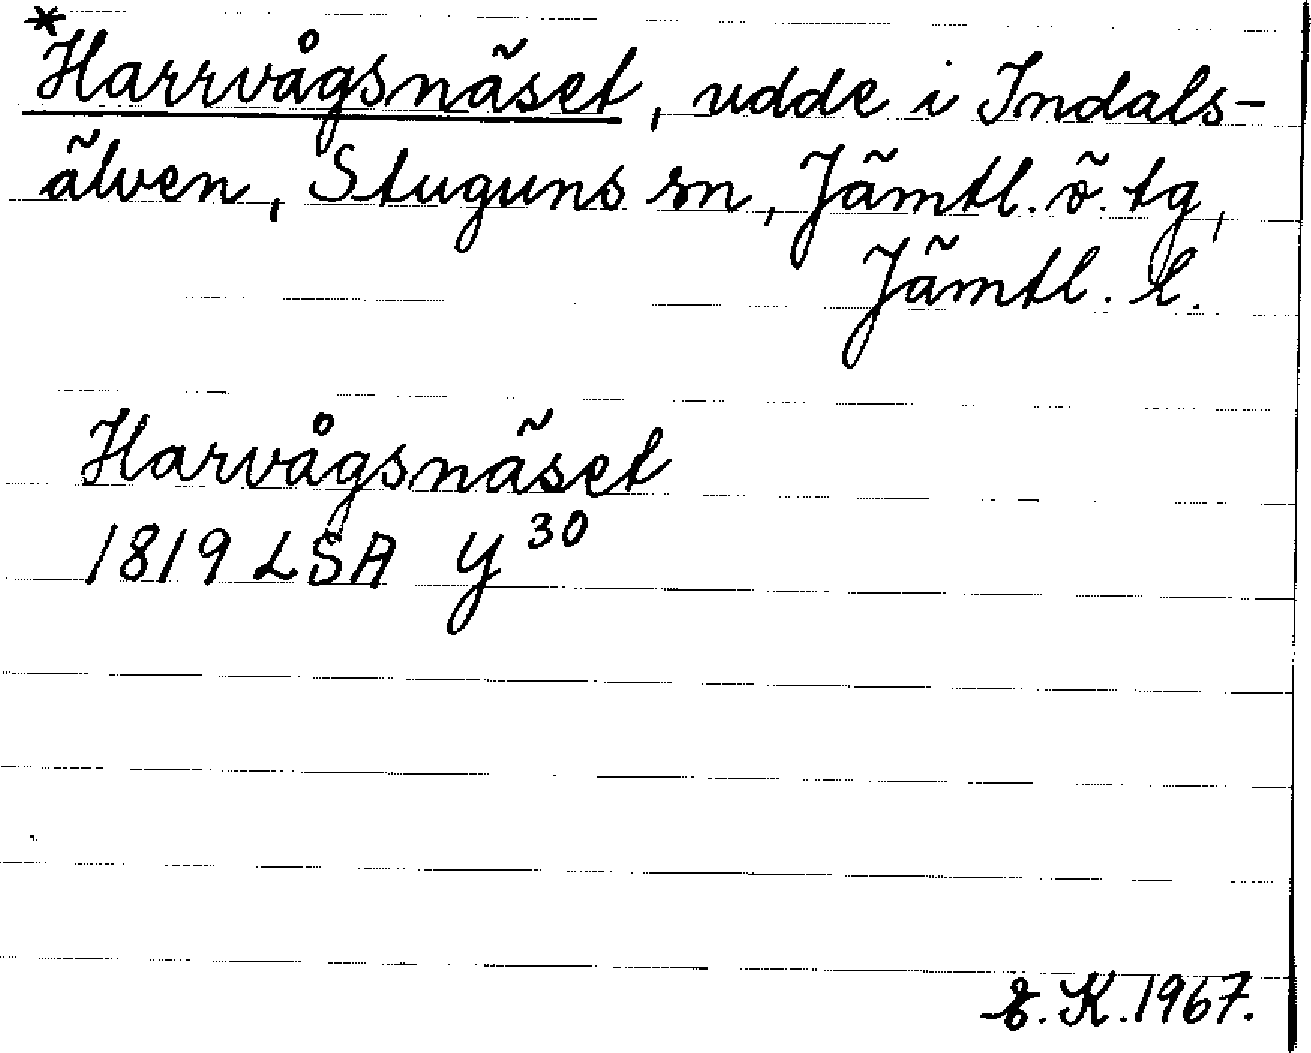 *Harrvågsnäset, udde i Indals-
älven, Stuguns sn, Jämtl. ö. tg,
Jämtl. l.
Harvågsnäset
1819 LSA Y 30
E. K. 1967.